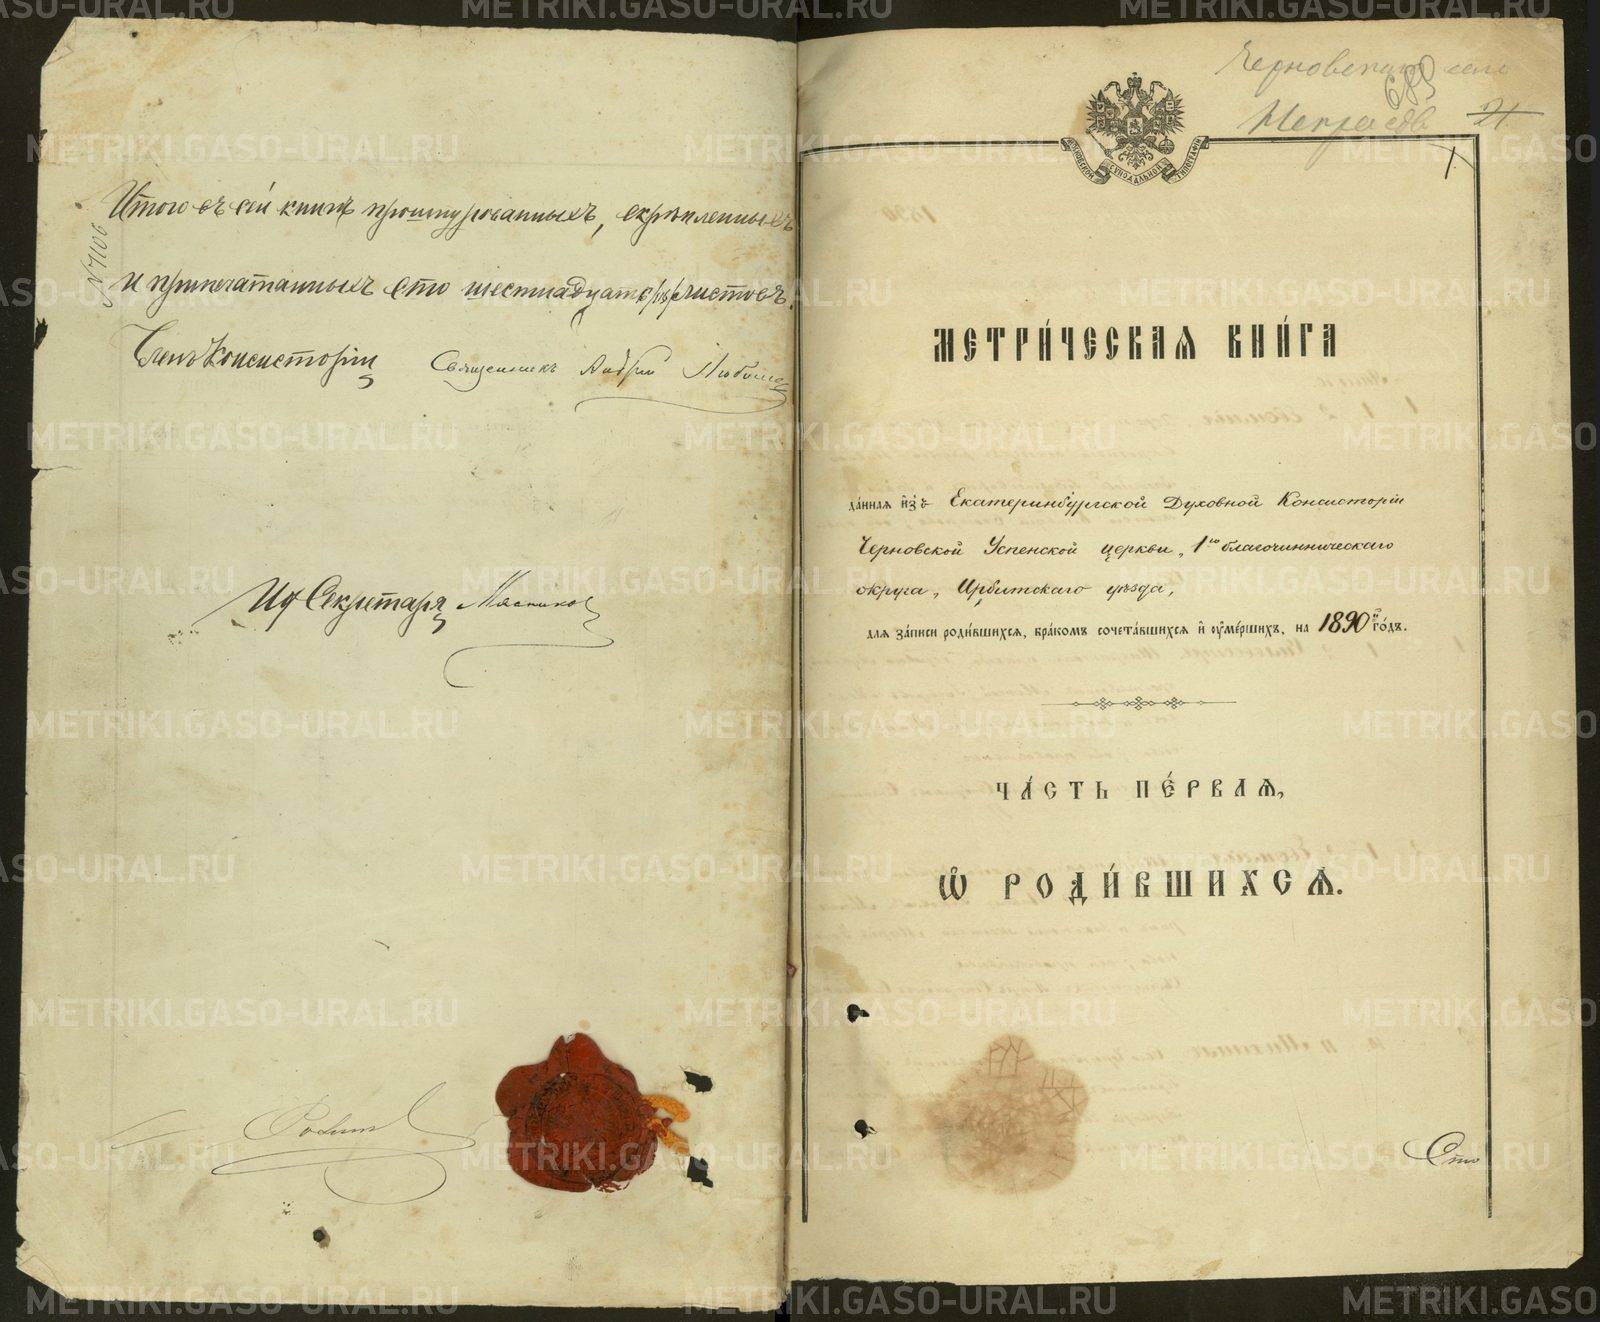 № 7106
Итого въ сей книгѣ прошнурованныхъ, скрѣпленныхъ
и припечатанныхъ сто шестнадцать /116/ листовъ.
Членъ Консисторіи Священникъ Андрей
Ид Секретаря Мясников
Черновская село
689
21
1
МОСКОВСКОЙ СУНОДАЛЬНОЙ ТИПОГРАФІИ
МЕТРИ́ЧЕСКАЯ КНИ́ГА
да́нная и҆зъ Екатеринбургской Духовной Консисторіи
Черновской Успенской церкви, 1го благочинническаго
округа, Ирбитскаго уѣзда,
для за́писи роди́вшихся, бра́комъ сочета́вшихся и҆ оуме́ршихъ, на 1890й го́дъ.
ЧА́СТЬ ПЕ́РВАЯ,
Ѡ҆ РОДИ́ВШИХСЯ.
Сто
METRIKI.GASO-URAL.RU